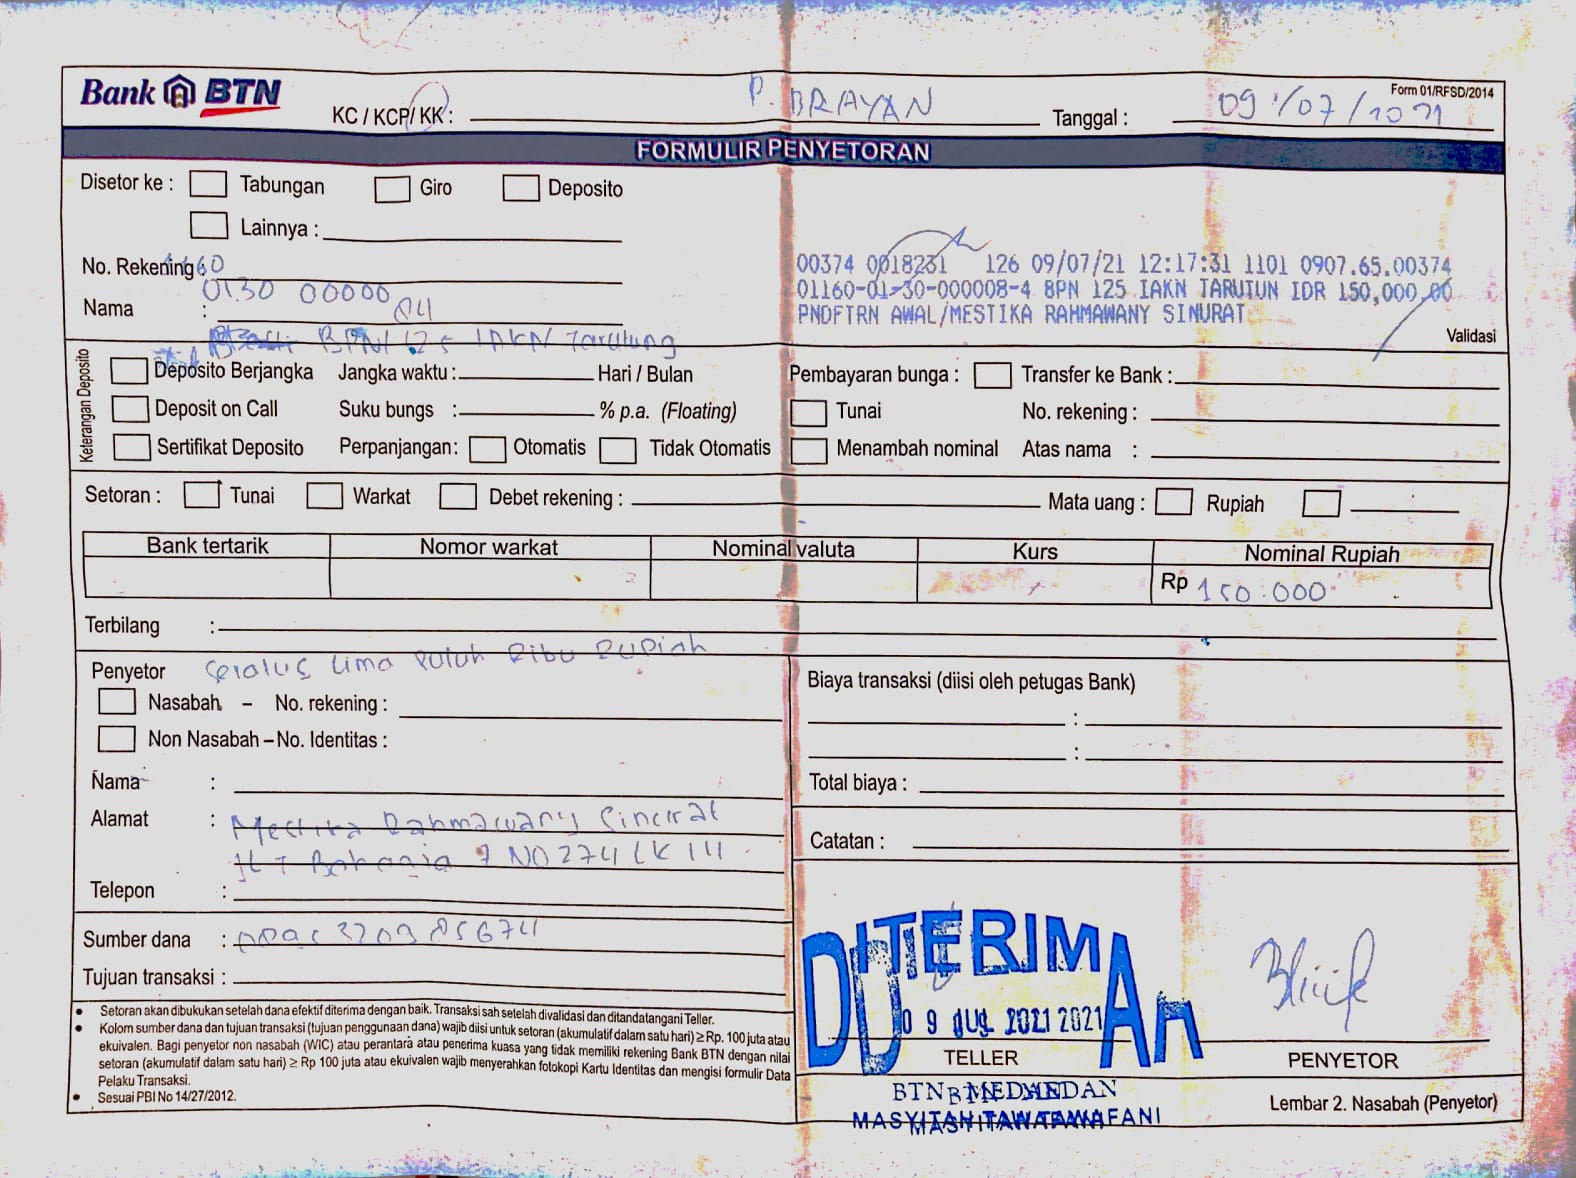 Bank BTN
Form 01/RFSD/2014
KC / KCP/ KK : P. BRAYAN Tanggal : 09/07/2021
FORMULIR PENYETORAN
Disetor ke : Tabungan Giro Deposito
Lainnya :
No. Rekening :
0130 00000 84
Nama :
BPN 125 IAKN Tarutung
00374 0018231 126 09/07/21 12:17:31 1101 0907.65.00374
01160-01-30-000008-4 BPN 125 IAKN TARUTUN IDR 150,000.00
PNDFTRN AWAL/MESTIKA RAHMAWANY SINURAT
Validasi
Keterangan Deposito
Deposito Berjangka Jangka waktu : Hari / Bulan Pembayaran bunga : Transfer ke Bank :
Deposit on Call Suku bungs : % p.a. (Floating) Tunai No. rekening :
Sertifikat Deposito Perpanjangan : Otomatis Tidak Otomatis Menambah nominal Atas nama :
Setoran : Tunai Warkat Debet rekening : Mata uang : Rupiah
Bank tertarik Nomor warkat Nominal valuta Kurs Nominal Rupiah
Rp 150.000
Terbilang :
Seratus Lima Puluh Ribu Rupiah
Penyetor
Nasabah – No. rekening :
Non Nasabah – No. Identitas :
Nama :
Alamat : Mestika Rahmawany Sinurat
7 NO 274 LK III
Telepon :
Sumber dana :
Tujuan transaksi :
Biaya transaksi (diisi oleh petugas Bank)
:
:
Total biaya :
Catatan :
• Setoran akan dibukukan setelah dana efektif diterima dengan baik. Transaksi sah setelah divalidasi dan ditandatangani Teller.
• Kolom sumber dana dan tujuan transaksi (tujuan penggunaan dana) wajib diisi untuk setoran (akumulatif dalam satu hari) ≥ Rp. 100 juta atau
ekuivalen. Bagi penyetor non nasabah (WIC) atau perantara atau penerima kuasa yang tidak memiliki rekening Bank BTN dengan nilai
setoran (akumulatif dalam satu hari) ≥ Rp 100 juta atau ekuivalen wajib menyerahkan fotokopi Kartu Identitas dan mengisi formulir Data
Pelaku Transaksi.
• Sesuai PBI No 14/27/2012.
DITERIMA
09 JUL 2021 2021
TELLER
PENYETOR
BTN MEDAN
MASYITAH TAWAFANI
Lembar 2. Nasabah (Penyetor)